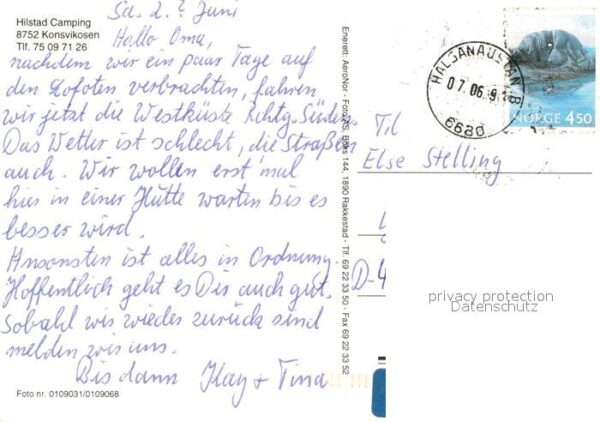 Hilstad Camping
8752 Konsvikosen
Tlf. 75 09 71 26
Sa. 2.? Juni
Hallo Oma,
nachdem wir ein paar Tage auf
den Lofoten verbrachten, fahren
wir jetzt die Westküste Richtg. Süden.
Das Wetter ist schlecht, die Straßen
auch. Wir wollen erst 'mal
hier in einer Hütte warten bis es
besser wird.
Ansonsten ist alles in Ordnung.
Hoffentlich geht es Dir auch gut.
Sobald wir wieder zurück sind
melden wir uns.
Bis dann Kay + Tina
Foto nr. 0109031/0109068
Enerett: AeroNor - Foto A/S, Boks 144, 1890 Rakkestad - Tlf 69 22 33 50 - Fax 69 22 33 52
HALSANAUSTAN B
07.06.9
6680
NORGE 450
Til
Else Stelling
D-4
privacy protection
Datenschutz